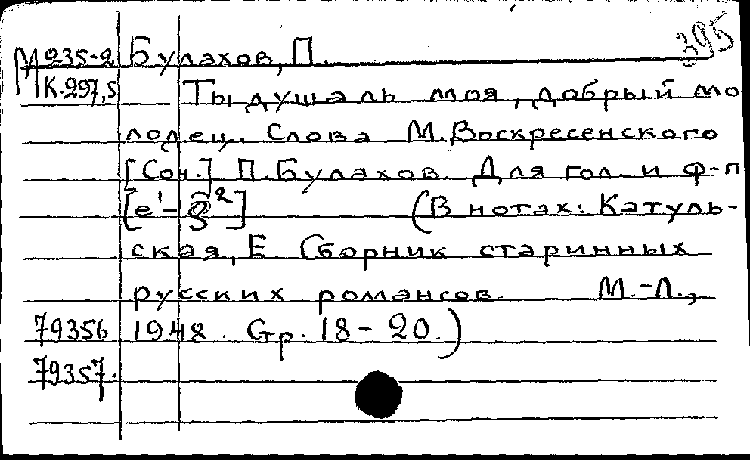 395
М 235-2 Булахов, П.
К.297,5 Ты душаль моя, добрый мо
лодец. Слова М. Воскресенского
[Соч.] П. Булахов. Для гол. и ф-п
[e¹ – g²] (В нотах: Катуль-
ская, Е Сборник старинных
русских романсов. М.-Л.,
79356 1948. Стр. 18 – 20.)
79357.